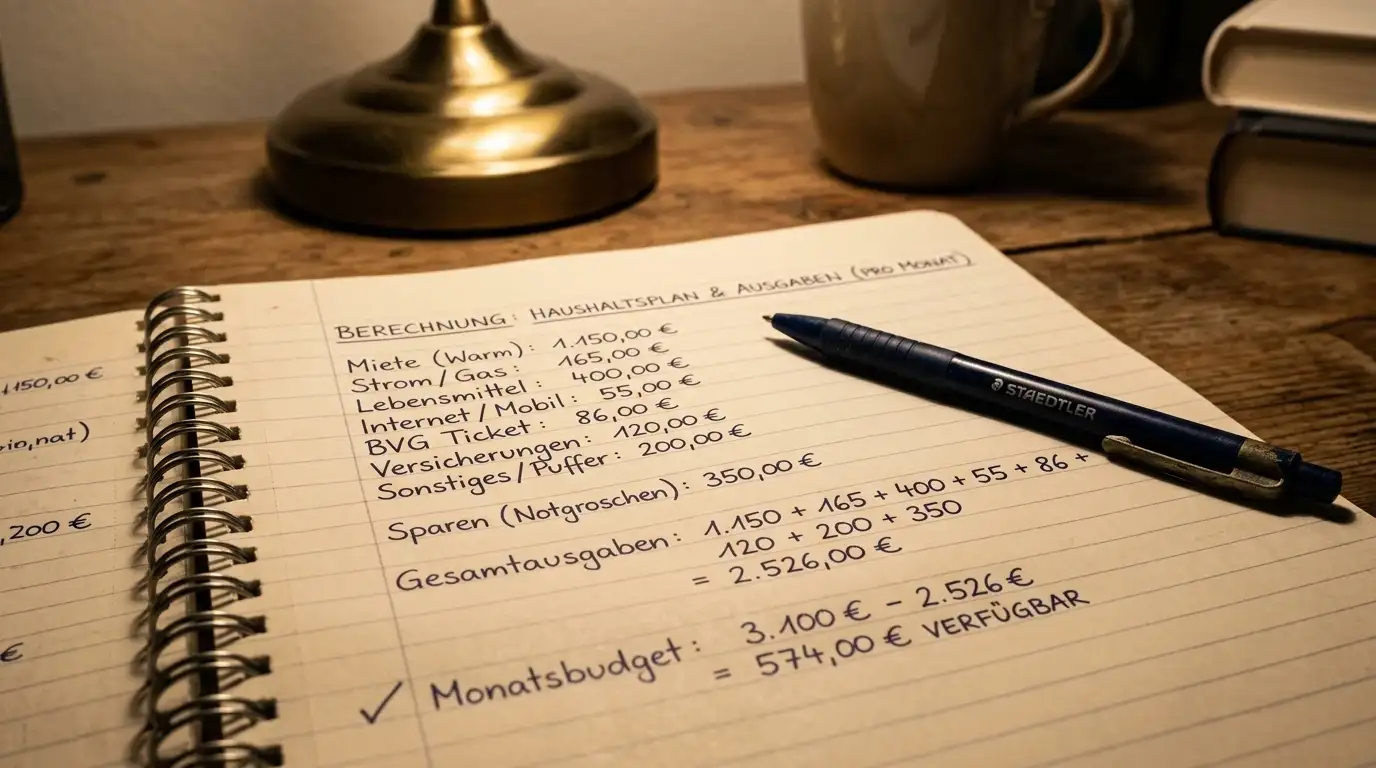 1.150,00 €
200 €
€
BERECHNUNG: HAUSHALTSPLAN & AUSGABEN (PRO MONAT)
Miete (Warm): 1.150,00 €
Strom/Gas: 165,00 €
Lebensmittel: 400,00 €
Internet/Mobil: 55,00 €
BVG Ticket: 86,00 €
Versicherungen: 120,00 €
Sonstiges/Puffer: 200,00 €
Sparen (Notgroschen): 350,00 €
Gesamtausgaben: 1.150 + 165 + 400 + 55 + 86 +
120 + 200 + 350
= 2.526,00 €
✓ Monatsbudget: 3.100 € – 2.526 €
= 574,00 € VERFÜGBAR
STAEDTLER